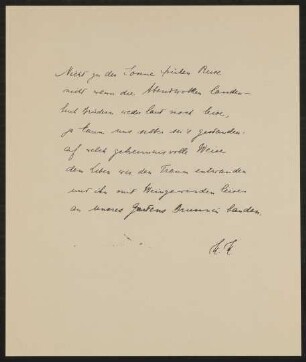 Nicht zu der Sonne frühen Reise
nicht wenn die Abendwolken landen
Euch Brüdern weder laut noch leise,
ja kaum uns selber sei's gestanden:
auf welch geheimnisvolle Weise
dem Leben wir den Traum entwanden
und ihn mit Weingewinden leise
an unseres Gartens Brunnen banden.